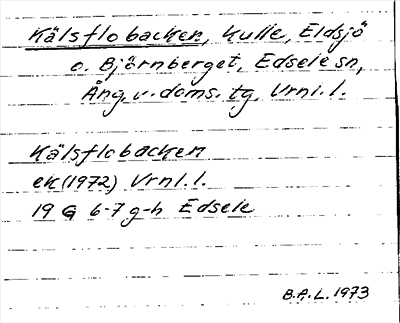 Kälsflobacken, Kulle, Eldsjö
o. Björnberget, Edsele sn,
Ång. v. doms. tg, Vrnl. l.
Kälsflobacken
ek (1972) Vrnl. l.
19 G 6-7 g-h Edsele
B.A.L. 1973